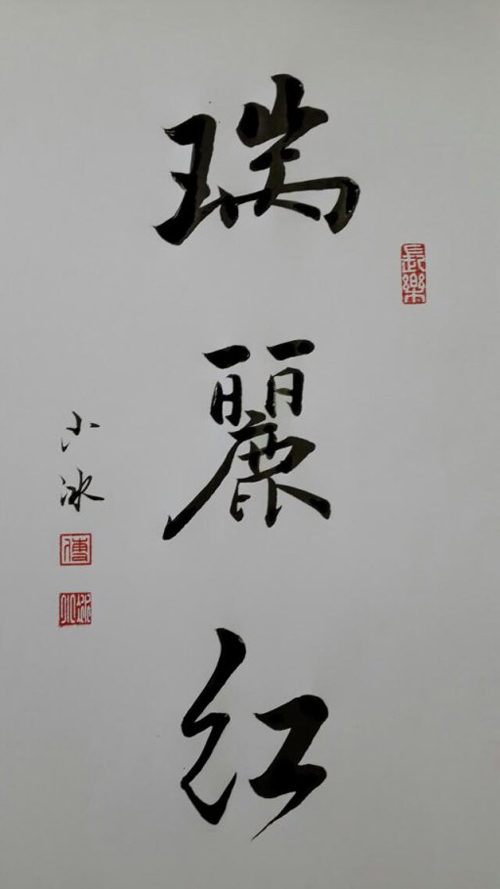 瑞麗红
長樂
小冰
傅
小冰